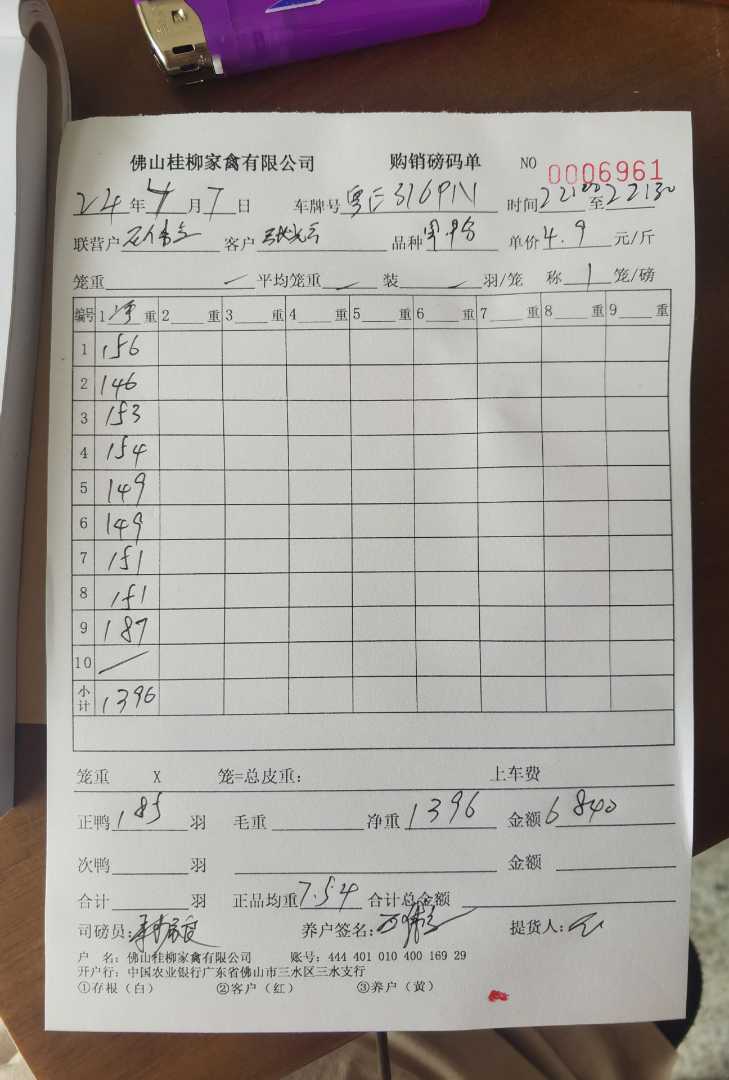 佛山桂柳家禽有限公司 购销磅码单 NO 0006961
24年4月7日 车牌号 粤E316PN 时间 22:00至22:30
联营户 客户 品种 单价4.9元/斤
笼重 — 平均笼重 — 装 — 羽/笼 称 1 笼/磅
编号 1净重 2 重 3 重 4 重 5 重 6 重 7 重 8 重 9 重
1 156
2 146
3 153
4 154
5 149
6 149
7 151
8 151
9 187
10 —
小计 1396
笼重 X 笼=总皮重: 上车费
正鸭185羽 毛重 净重1396 金额6840
次鸭 羽 金额
合计 羽 正品均重7.54 合计总金额
司磅员: 养户签名: 提货人:
户 名: 佛山桂柳家禽有限公司 账号: 444 401 010 400 169 29
开户行: 中国农业银行广东省佛山市三水区三水支行
①存根(白) ②客户(红) ③养户(黄)